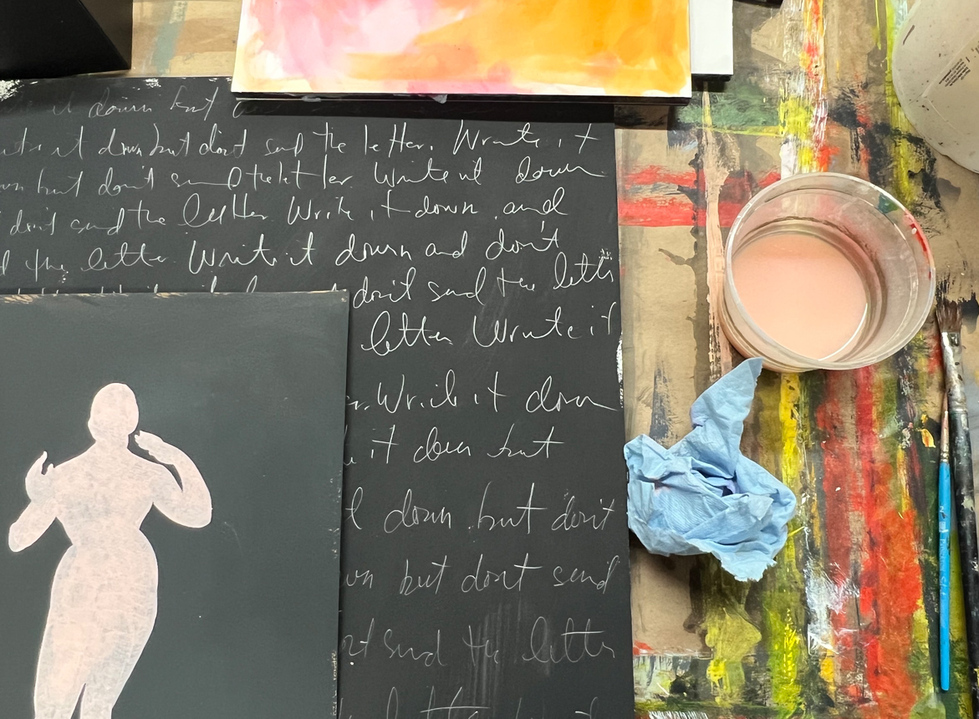 it down but
it down but don't send the letter. Write it
but don't send the letter Write it down
don't send the letter Write it down and
the letter Write it down and don't
don't send the letter
letter Write it
Write it down
it down but
down. but don't
but don't send
send the letter